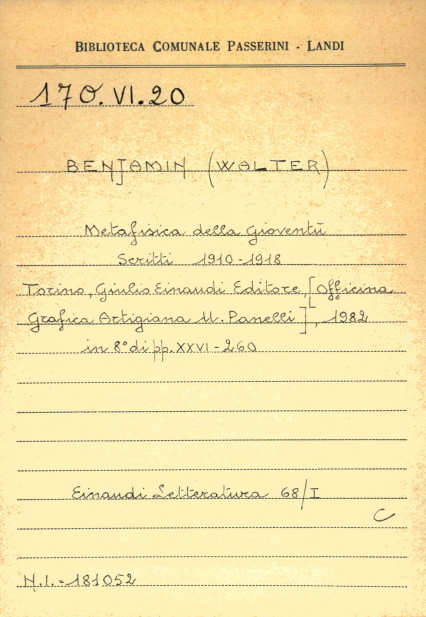 BIBLIOTECA COMUNALE PASSERINI - LANDI
170.VI.20
BENJAMIN (WALTER)
Metafisica della Gioventù
Scritti 1910-1918
Torino, Giulio Einaudi Editore, [Officina
Grafica Artigiana U. Panelli], 1982
in 8° di pp. XXVI-260
Einaudi Letteratura 68/I
C
N.I.=181052